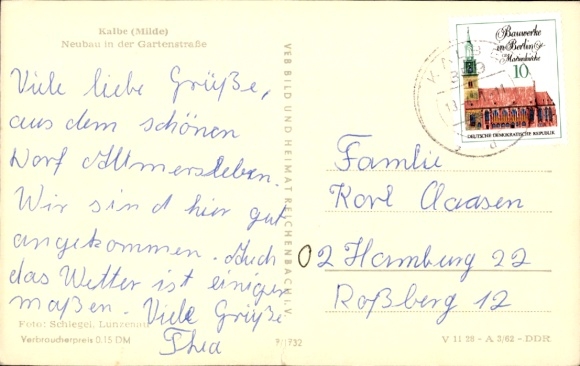 Kalbe (Milde)
Neubau in der Gartenstraße
Viele liebe Grüße,
aus dem schönen
Dorf Altmersleben.
Wir sind hier gut
angekommen. Auch
das Wetter ist einiger
maßen. Viele Grüße
Thea
Foto: Schlegel, Lunzenau
Verbraucherpreis 0.15 DM
VEB BILD UND HEIMAT REICHENBACH I. V.
Bauwerke
in Berlin
Marienkirche
10
DEUTSCHE DEMOKRATISCHE REPUBLIK
Familie
Karl Claasen
02 Hamburg 22
Roßberg 12
V 11 28 - A 3/62 - DDR